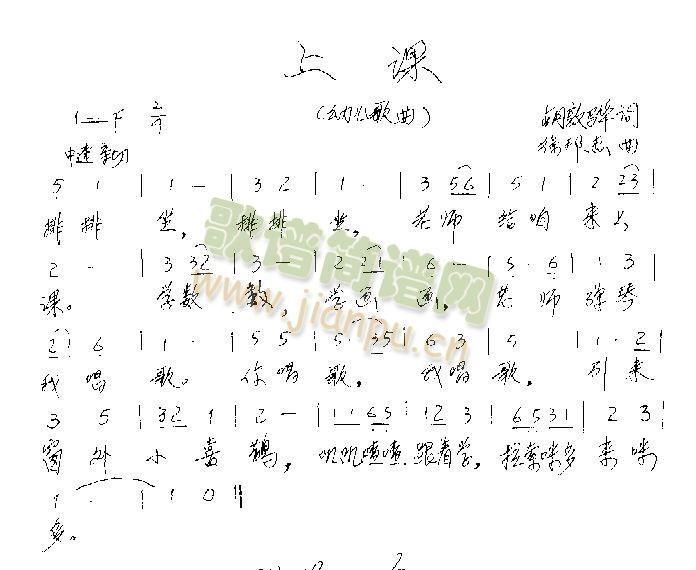 上 课
1=F 2/4 (幼儿歌曲) 胡敦骅 词
中速 亲切 徐邦杰 曲
5 1 | 1 - | 3 2 | 1 · | 3 56 | 5 1 | 2 23 |
排排 坐, 排排 坐, 老师 给咱 来上
2 - | 3 32 | 3 - | 2 21 | 6 - | 5 · 6 | 1 3 |
课。 学数 数, 学画 画, 老师 弹琴
2 6 | 1 · | 5 5 | 5 · 35 | 6 3 | 5 | 1 · 2 |
我唱 歌。 你唱 歌, 我唱 歌, 引来
3 5 | 32 1 | 2 - | 1165 | 12 3 | 6531 | 2 3 |
窗外 小喜 鹊, 叽叽喳喳 跟着学, 拉索咪多 来咪
1 · | 1 0 ‖
多。
歌谱简谱网
www.jianpu.cn